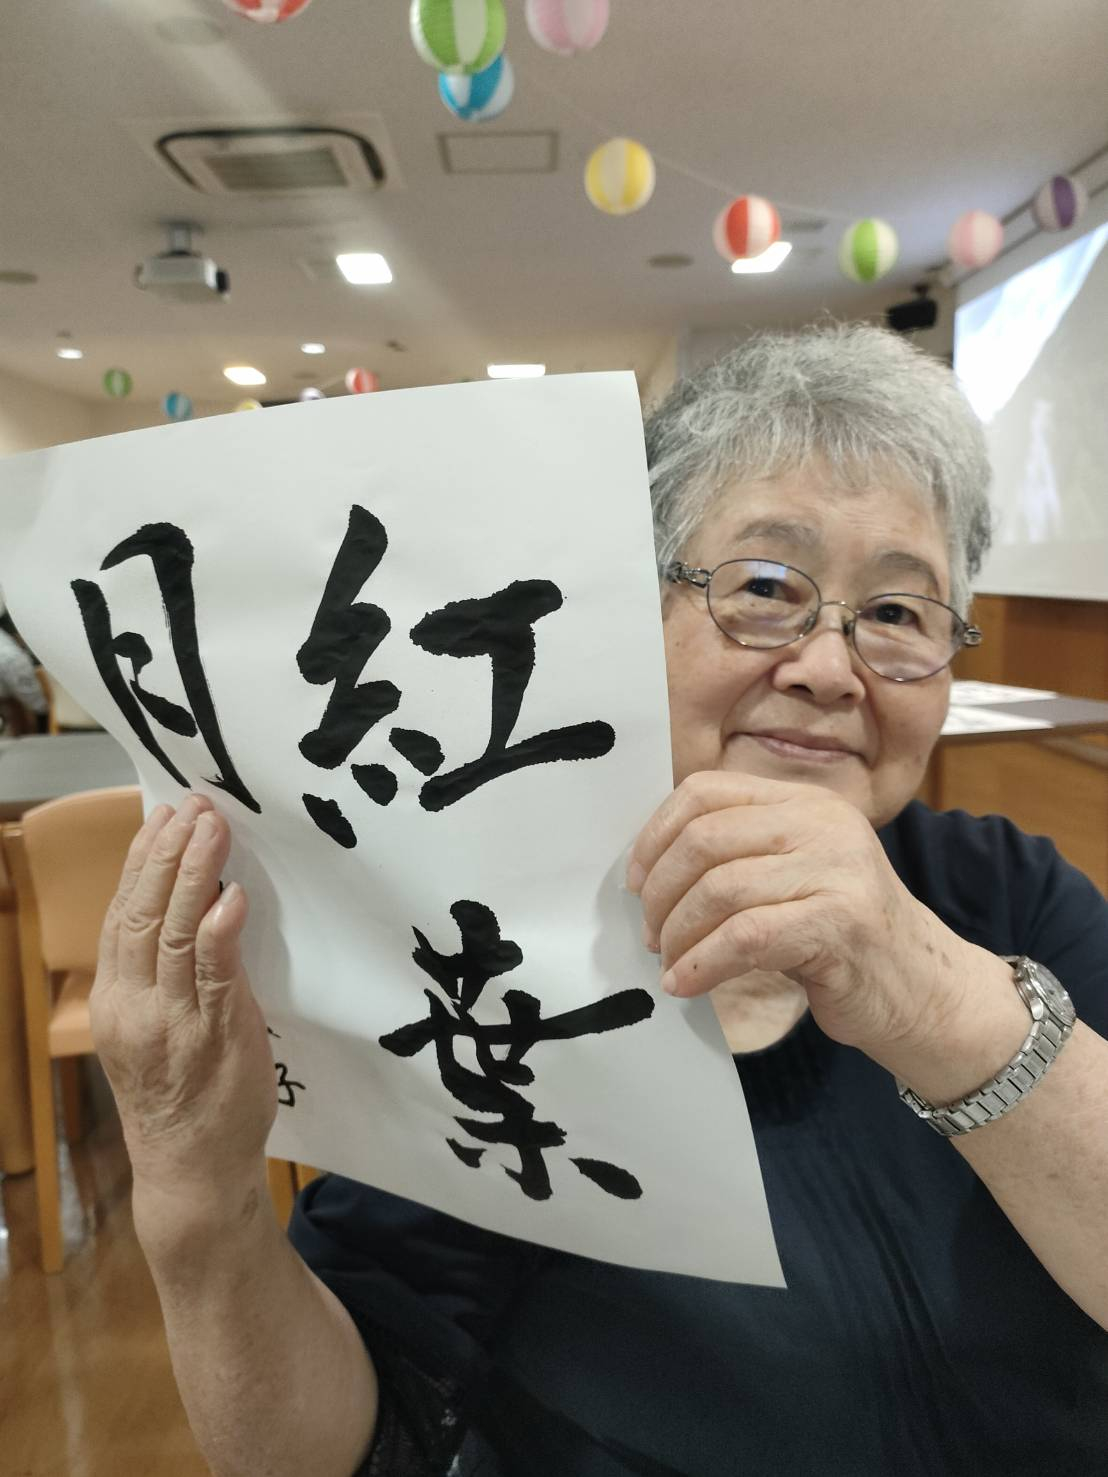 紅葉
月
子